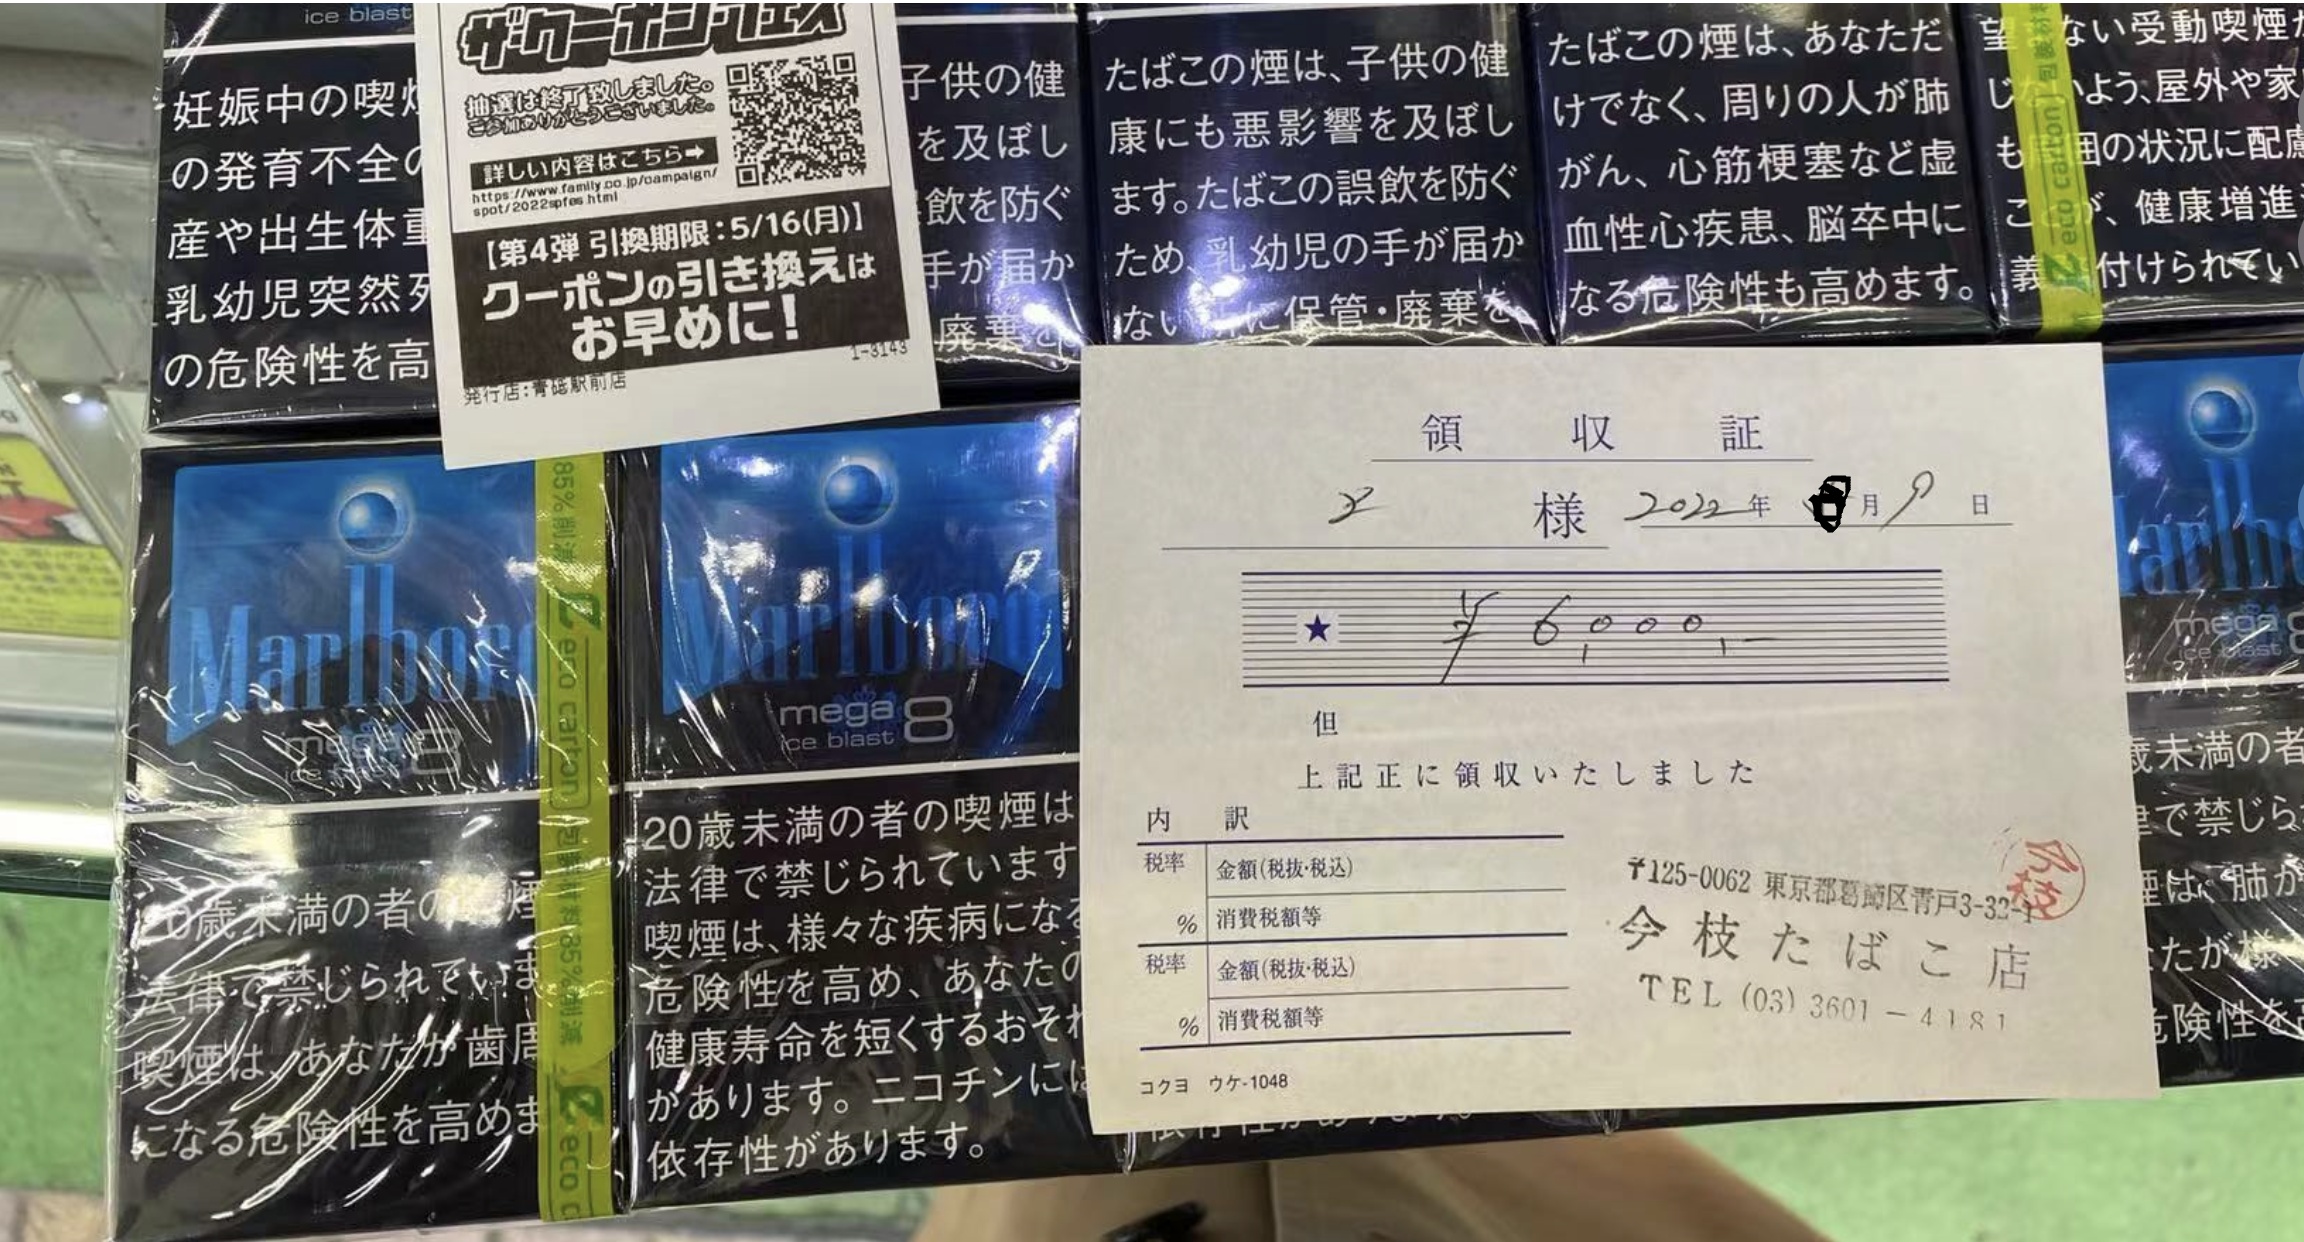 ice blast
妊娠中の喫
の発育不全の
産や出生体重
乳幼児突然死
の危険性を高
ザ・クーポン・フェス
抽選は終了致しました。
ご参加ありがとうございました。
詳しい内容はこちら➡
https://www.family.co.jp/campaign/
spot/2022spfes.html
【第4弾 引換期限:5/16(月)】
クーポンの引き換えは
お早めに!
1-3143
発行店:青砥駅前店
子供の健
を及ぼし
飲を防ぐ
手が届か
廃棄を
たばこの煙は、子供の健
康にも悪影響を及ぼし
ます。たばこの誤飲を防ぐ
ため、乳幼児の手が届か
ない所に保管・廃棄を
たばこの煙は、あなただ
けでなく、周りの人が肺
がん、心筋梗塞など虚
血性心疾患、脳卒中に
なる危険性も高めます。
ない受動喫煙が
じないよう、屋外や家
も周囲の状況に配慮
健康増進
付けられてい
包装材料
eco carton
Marlboro
mega 8
ice blast
85%削減
eco carton
包装材料85%削減
eco
20歳未満の者の喫煙
法律で禁じられていま
喫煙は、あなたが歯周
になる危険性を高めま
Marlboro
mega 8
ice blast
20歳未満の者の喫煙は
法律で禁じられています
喫煙は、様々な疾病になる
危険性を高め、あなたの
健康寿命を短くするおそれ
があります。ニコチンには
依存性があります。
領収証
様 2022年 月9日
★ ¥6,000,-
但
上記正に領収いたしました
内訳
税率 金額(税抜・税込)
% 消費税額等
税率 金額(税抜・税込)
% 消費税額等
コクヨ ウケ-1048
〒125-0062 東京都葛飾区青戸3-32-1
今枝たばこ店
TEL (03) 3601-4181
今枝
arlbo
mega 8
ice blast
歳未満の者
律で禁じら
煙は、肺が
たが様
危険性を高